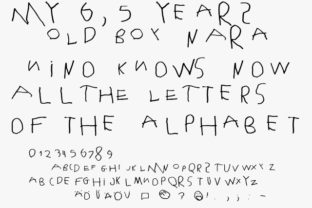 MY 6,5 YEARS
OLD BOY NARA
NINO KNOWS NOW
ALL THE LETTERS
OF THE ALPHABET
0123456789
ABCDEFGHIJKLMNOPQRSTUVWXYZ
ABCDEFGHIJKLMNOPQRSTUVWXYZ